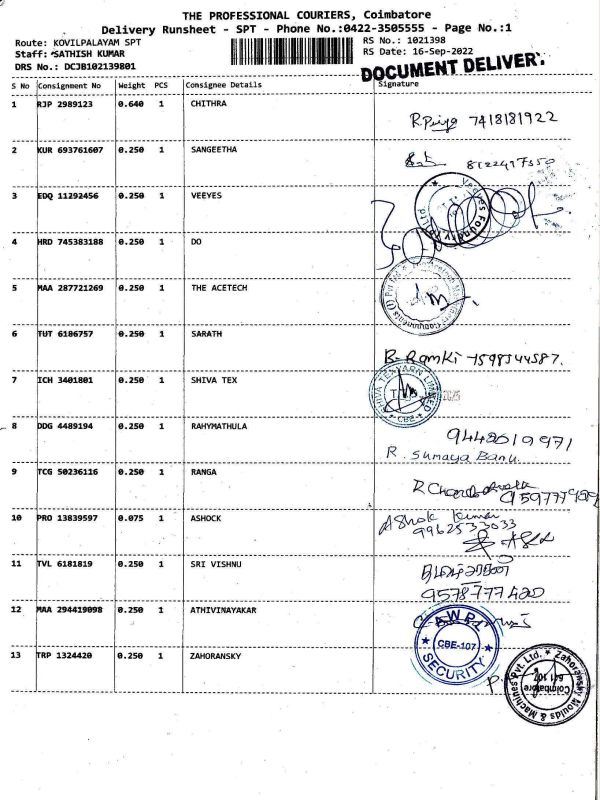 THE PROFESSIONAL COURIERS, Coimbatore
Delivery Runsheet - SPT - Phone No.:0422-3505555 - Page No.:1
Route: KOVILPALAYAM SPT
RS No.: 1021398
Staff: SATHISH KUMAR
RS Date: 16-Sep-2022
DRS No.: DCJB102139801
DOCUMENT DELIVER
S No Consignment No Weight PCS Consignee Details Signature
1 RJP 2989123 0.640 1 CHITHRA
R.Priya 7418181922
2 KUR 693761607 0.250 1 SANGEETHA
3 EDQ 11292456 0.250 1 VEEYES
Veeyes Foundry
4 HRD 745383188 0.250 1 DO
5 MAA 287721269 0.250 1 THE ACETECH
6 TUT 6186757 0.250 1 SARATH
B. Ramki 7598344587.
7 ICH 3401801 0.250 1 SHIVA TEX
SHIVA TEXYARN LIMITED
CBE
8 DDG 4489194 0.250 1 RAHYMATHULA
R. Sumaya Banu.
9 TCG 50236116 0.250 1 RANGA
10 PRO 13839597 0.075 1 ASHOCK
Ashok Kumar
9962533033
11 TVL 6181819 0.250 1 SRI VISHNU
9578777420
12 MAA 294419098 0.250 1 ATHIVINAYAKAR
AWPL
CBE-107
SECURITY
13 TRP 1324420 0.250 1 ZAHORANSKY
Zahoransky Moulds & Machines Pvt. Ltd.
Coimbatore
641 107